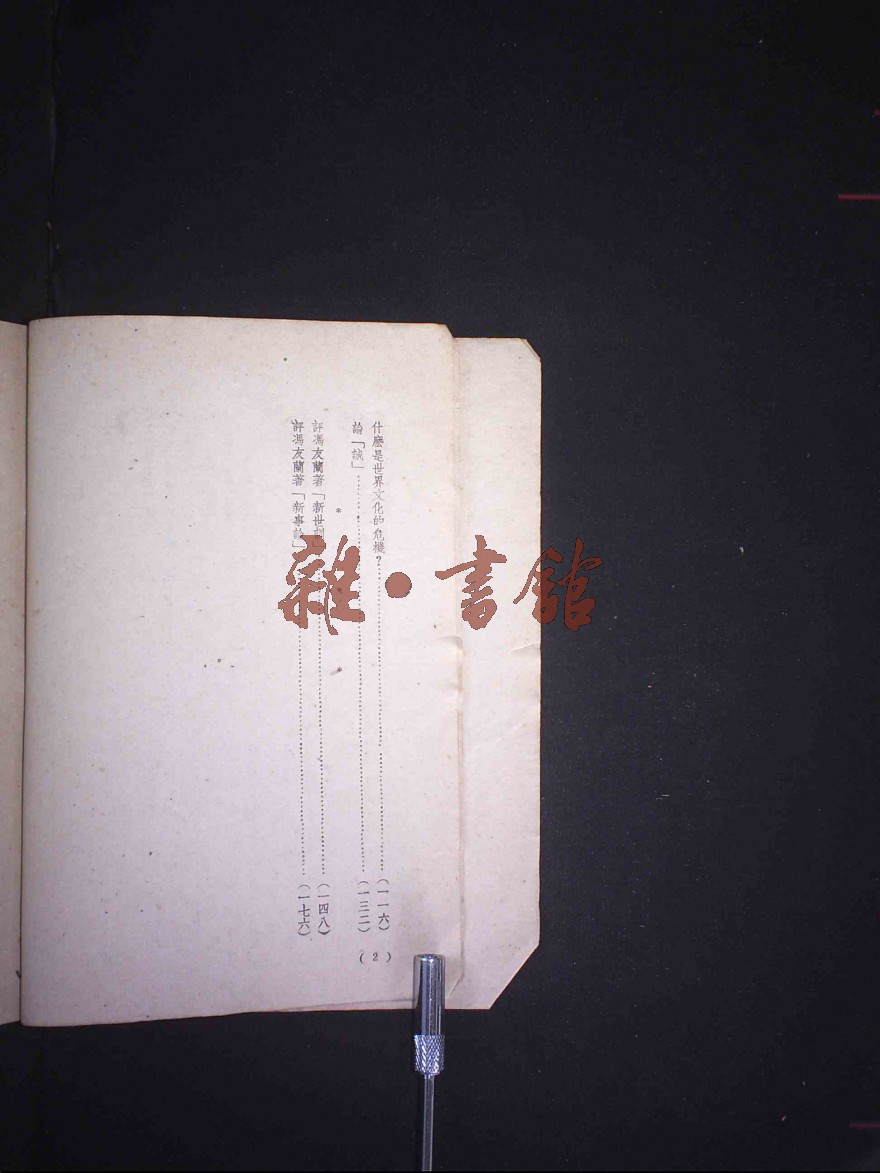 什麼是世界文化的危機？……………………（一一六）
論「誠」……………………（一三二）
*
評馮友蘭著「新世訓」……………………（一四八）
評馮友蘭著「新事論」……………………（一七六）
(2)
雜·書館